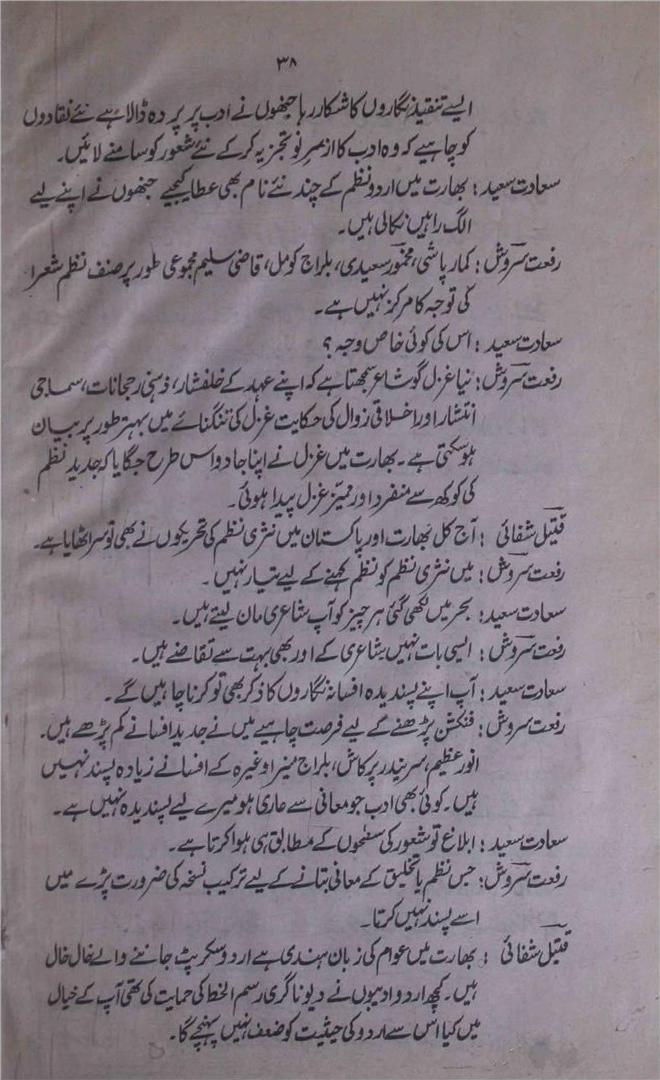 ۳۸
ایسے تنقیذ نگاروں کا شکار رہا جنھوں نے ادب پر پردہ ڈالا ہے نئے نقادوں
کو چاہیے کہ وہ ادب کا از سرِ نو تجزیہ کر کے نئے شعور کو سامنے لائیں۔
سعادت سعید : بھارت میں اردو نظم کے چند نئے نام بھی عطا کیجیے جنھوں نے اپنے لیے
الگ راہیں نکالی ہیں۔
رفعت سروش : کمار پاشی، مخمور سعیدی، بلراج کومل، قاضی سلیم مجموعی طور پر صنف نظم شعرا
کی توجہ کا مرکز نہیں ہے۔
سعادت سعید : اس کی کوئی خاص وجہ ؟
رفعت سروش : نیا غزل گو شاعر سمجھتا ہے کہ اپنے عہد کے خلفشار، ذہنی رجحانات، سماجی
انتشار اور اخلاقی زوال کی حکایت غزل کی تنگنائے میں بہتر طور پر بیان
ہو سکتی ہے۔ بھارت میں غزل نے اپنا جادو اس طرح جگایا کہ جدید نظم
کی کوکھ سے منفرد اور ممیز غزل پیدا ہوئی۔
قتیل شفائی : آج کل بھارت اور پاکستان میں نثری نظم کی تحریکوں نے بھی تو سر اٹھایا ہے۔
رفعت سروش : میں نثری نظم کو نظم کہنے کے لیے تیار نہیں۔
سعادت سعید : بحر میں لکھی گئی ہر چیز کو آپ شاعری مان لیتے ہیں۔
رفعت سروش : ایسی بات نہیں شاعری کے اور بھی بہت سے تقاضے ہیں۔
سعادت سعید : آپ اپنے پسندیدہ افسانہ نگاروں کا ذکر بھی تو کرنا چاہیں گے۔
رفعت سروش : فنکشن پڑھنے کے لیے فرصت چاہیے میں نے جدید افسانے کم پڑھے ہیں۔
انور عظیم، سریندر پرکاش، بلراج مینرا وغیرہ کے افسانے زیادہ پسند نہیں
ہیں۔ کوئی بھی ادب جو معانی سے عاری ہو میرے لیے پسندیدہ نہیں ہے۔
سعادت سعید : ابلاغ تو شعور کی سطحوں کے مطابق ہی ہوا کرتا ہے۔
رفعت سروش : جس نظم یا تخلیق کے معانی بتانے کے لیے ترکیب نسخہ کی ضرورت پڑے میں
اسے پسند نہیں کرتا۔
قتیل شفائی : بھارت میں عوام کی زبان ہندی ہے اردو سکرپٹ جاننے والے خال خال
ہیں۔ کچھ اردو ادیبوں نے دیوناگری رسم الخط کی حمایت کی تھی آپ کے خیال
میں کیا اس سے اردو کی حیثیت کو ضعف نہیں پہنچے گا۔